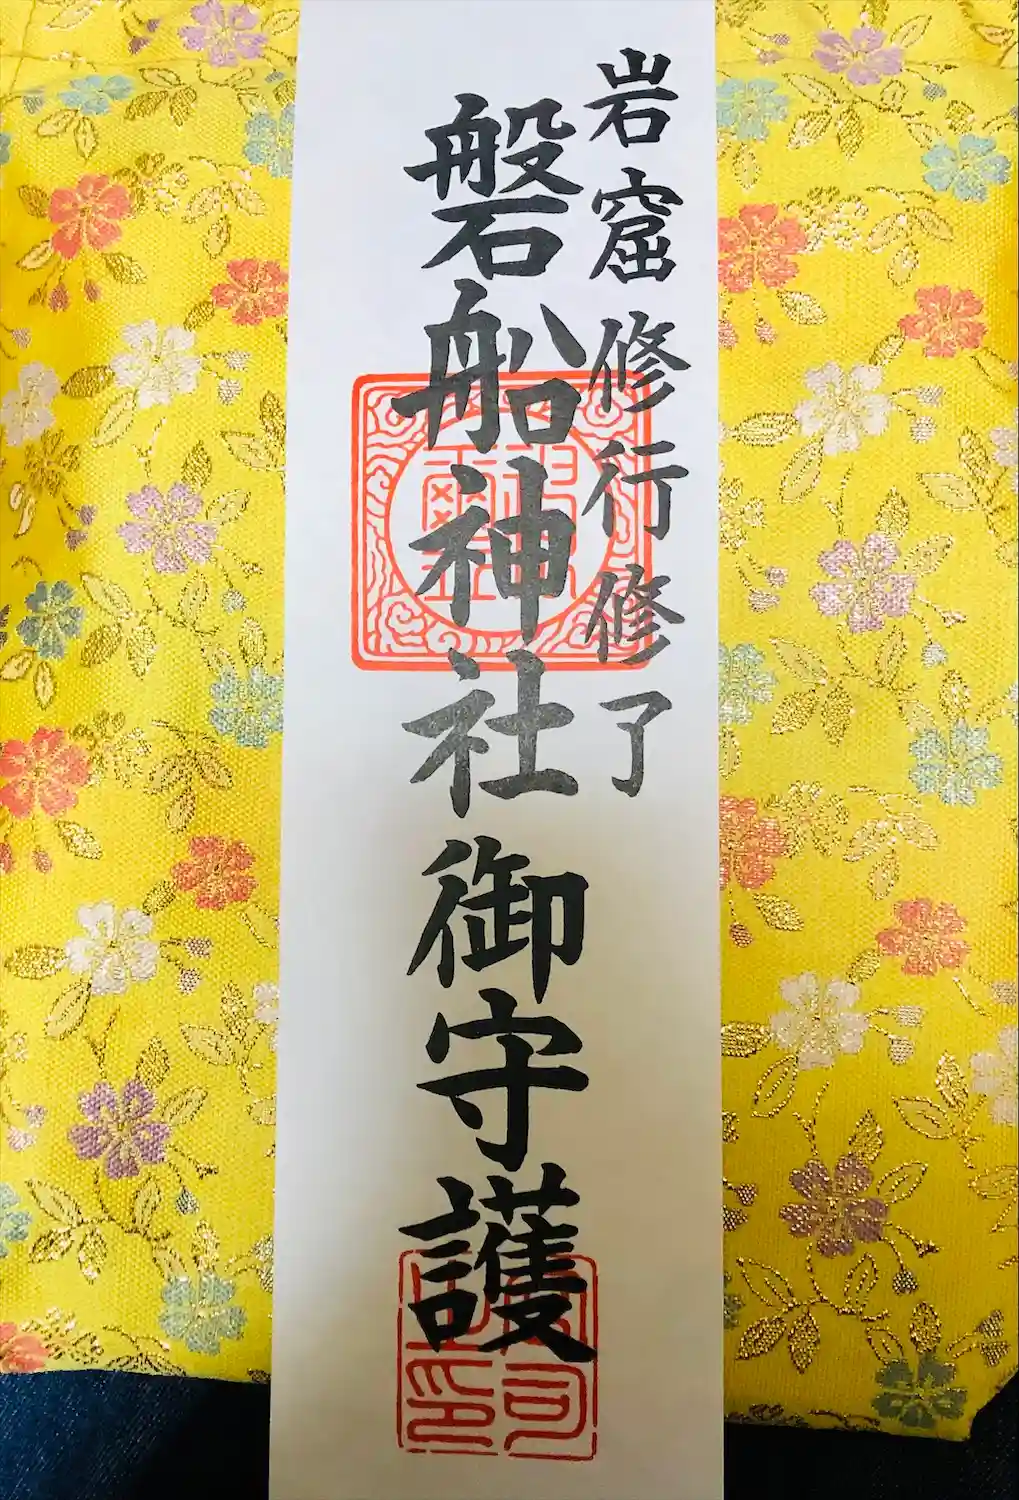 岩窟修行修了
磐船神社御守護